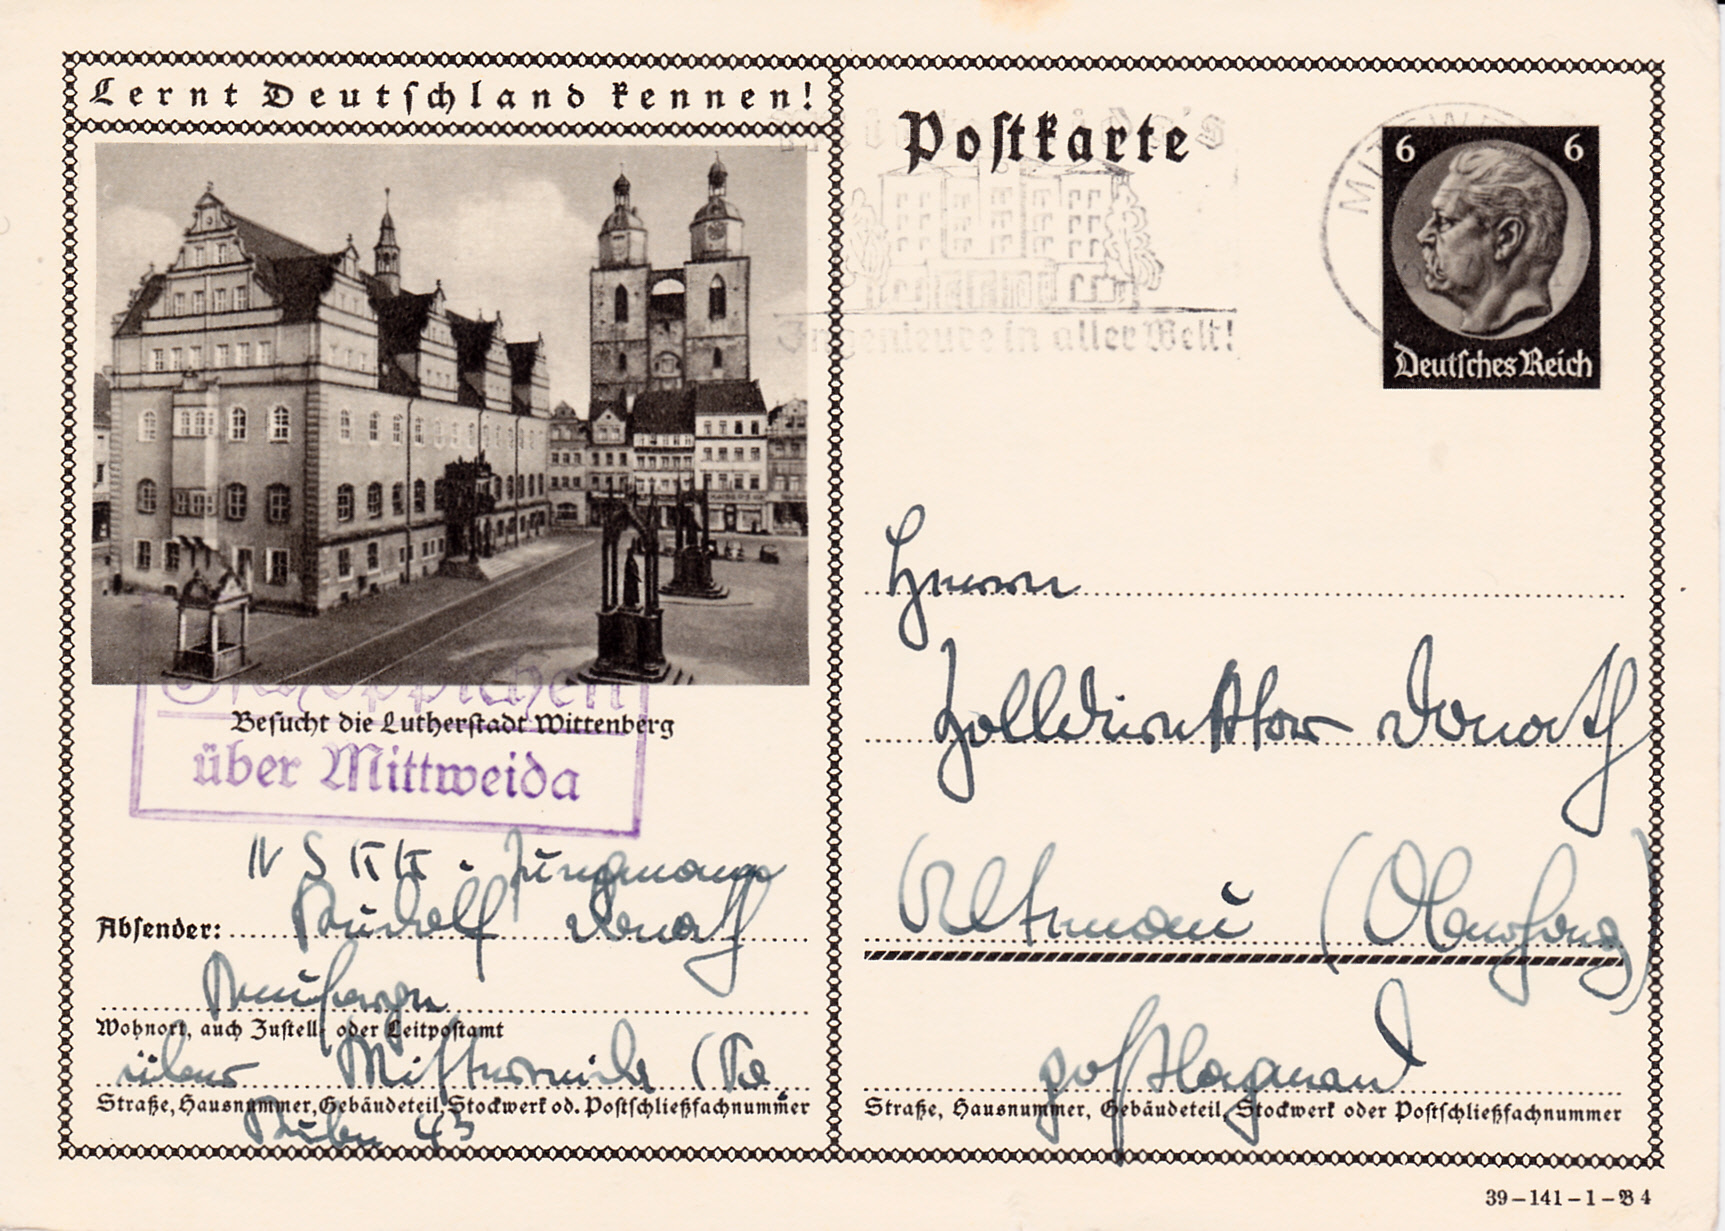 Lernt Deutschland kennen!
Postkarte
MITTWE
6 6
Deutsches Reich
Ingenieure in aller Welt!
Besucht die Lutherstadt Wittenberg
über Mittweida
Herrn
Zolldirektor Donath
Altenau (Oberharz)
postlagernd
Straße, Hausnummer, Gebäudeteil, Stockwerk oder Postschließfachnummer
NSKK-Jungmann
Absender: Rudolf Donath
Wohnort, auch Zustell- oder Leitpostamt
über Mittweida (Sa
Straße, Hausnummer, Gebäudeteil, Stockwerk od. Postschließfachnummer
39-141-1-B 4